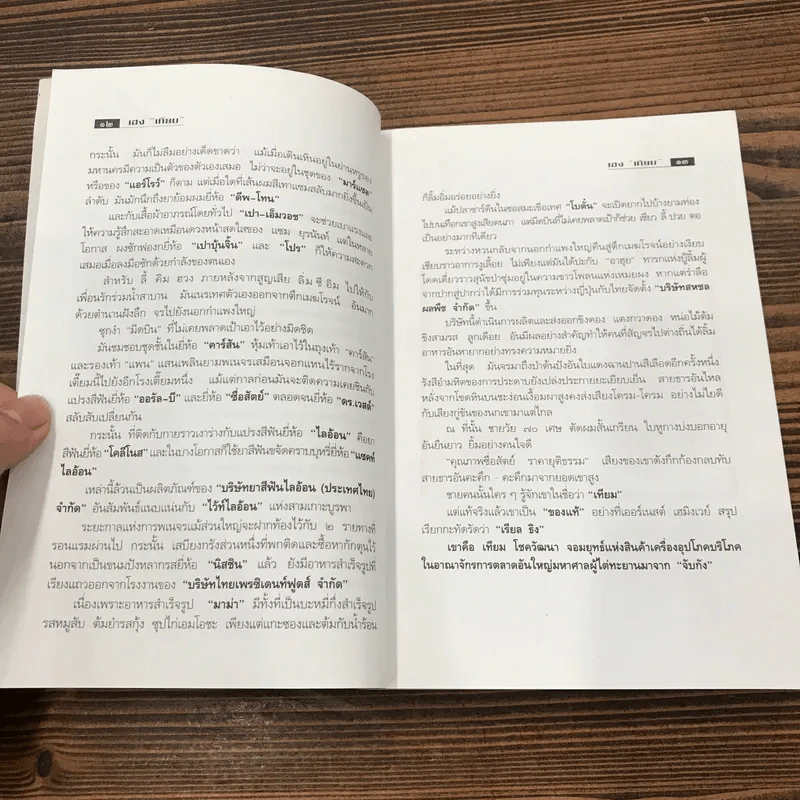 ๑๒ เฮง "เทียม"
กระนั้น มันก็ไม่ลืมอย่างเด็ดขาดว่า แม้เมื่อเดินเหินอยู่ในย่านหรูของ
มหานครมีความเป็นตัวของตัวเองเสมอ ไม่ว่าจะอยู่ในชุดของ "มาร์แชล"
หรือของ "แอร์โรว์" ก็ตาม แต่เมื่อใดที่เส้นผมสีเทาแซมสลับมากยิ่งขึ้นเป็น
ลำดับ มันมักนึกถึงยาย้อมผมยี่ห้อ "ดีพ-โทน"
และกับเสื้อผ้าอาภรณ์โดยทั่วไป "เปา-เอ็มวอช" จะช่วยเบาแรงและ
ให้ความรู้สึกสะอาดเหมือนดวงหน้าสดใสของ แซม ยุรนันท์ แต่ในหลาย
โอกาส ผงซักฟอกยี่ห้อ "เปาบุ้นจิ้น" และ "โปร" ก็ให้ความสะดวก
เสมอเมื่อลงมือซักด้วยกำลังของตนเอง
สำหรับ ลี้ คิม ฮวง ภายหลังจากสูญเสีย ลิ่ม ซี อิม ไปให้กับ
เพื่อนรักร่วมน้ำสาบาน มันเนรเทศตัวเองออกจากตึกเมฆโรจน์ อันมาก
ด้วยตำนานฝังลึก จรไปยังนอกกำแพงใหญ่
ชุกงำ "มีดบิน" ที่ไม่เคยพลาดเป้าเอาไว้อย่างมิดชิด
มันชมชอบชุดชั้นในยี่ห้อ "คาร์สัน" หุ้มเท้าเอาไว้ในถุงเท้า "คาร์สัน"
และรองเท้า "แพน" แสนเพลินยามพเนจรเสมือนจอกแหนไร้รากจากโรง
เตี๊ยมนี้ไปยังอีกโรงเตี๊ยมหนึ่ง แม้แต่กาลก่อนมันจะติดความเคยชินกับ
แปรงสีฟันยี่ห้อ "ออรัล-บี" และยี่ห้อ "ซื่อสัตย์" ตลอดจนยี่ห้อ "ดร.เวสต์"
สลับสับเปลี่ยนกัน
กระนั้น ที่ติดกับกายราวเงาร่างกับแปรงสีฟันยี่ห้อ "ไลอ้อน" คือยา
สีฟันยี่ห้อ "โคลี่โนส" และในบางโอกาสก็ใช้ยาสีฟันขจัดคราบบุหรี่ยี่ห้อ "แซคท์
ไลอ้อน"
เหล่านี้ล้วนเป็นผลิตภัณฑ์ของ "บริษัทยาสีฟันไลอ้อน (ประเทศไทย)
จำกัด" อันสัมพันธ์แนบแน่นกับ "ไว้ท์ไลอ้อน" แห่งสามเกาะบูรพา
ระยะกาลแห่งการพเนจรแม้ส่วนใหญ่จะฝากท้องไว้กับ ๒ รายทางที่
รอนแรมผ่านไป กระนั้น เสบียงกรังส่วนหนึ่งที่พกติดและซื้อหากักตุนไว้
นอกจากเป็นขนมปังหลากรสยี่ห้อ "นิสชิน" แล้ว ยังมีอาหารสำเร็จรูปที่
เรียงแถวออกจากโรงงานของ "บริษัทไทยเพรซิเดนท์ฟูดส์ จำกัด"
เนื่องเพราะอาหารสำเร็จรูป "มาม่า" มีทั้งที่เป็นบะหมี่กึ่งสำเร็จรูป
รสหมูสับ ต้มยำรสกุ้ง ซุปไก่เอมโอชะ เพียงแต่แกะซองและต้มกับน้ำร้อน
เฮง "เทียม" ๑๓
ก็ลิ้มอิ่มอร่อยอย่างยิ่ง
แม้ปลาซาร์ดีนในซอสมะเขือเทศ "โบตั๋น" จะเปิดยากไปบ้างยามท่อง
ไปบนเทือกเขาสูงเสียดนภา แต่มีดบินที่ไม่เคยพลาดเป้าก็ช่วย เซียว ลี้ ปวย ตอ
เป็นอย่างมากทีเดียว
ระหว่างหวนกลับจากนอกกำแพงใหญ่คืนสู่ตึกเมฆโรจน์อย่างเงียบ
เชียบราวอาการงูเลื้อย ไม่เพียงแต่มันได้ปะกับ "อาฮุย" ทารกแห่งบู๊ลิ้มผู้
โดดเดี่ยวราวสุนัขป่าซุ่มอยู่ในความขาวโพลนแห่งเหมยผง หากแต่ร่ำลือ
จากปากสู่ปากว่าได้มีการร่วมทุนระหว่างญี่ปุ่นกับไทยจัดตั้ง "บริษัทสหชล
ผลพืช จำกัด" ขึ้น
บริษัทนี้ดำเนินการผลิตและส่งออกขิงดอง แตงกวาดอง หน่อไม้ต้ม
ขิงสามรส ลูกเดือย อันมีผลอย่างสำคัญทำให้คนที่สัญจรไปต่างถิ่นได้ลิ้ม
อาหารอันหายากอย่างทรงความหมายยิ่ง
ในที่สุด มันจรมาถึงป่าต้นป้งอันใบแดงฉานปานสีเลือดอีกครั้งหนึ่ง
รังสีอำมหิตของการประดาบยังเปล่งประกายยะเยียบเย็น สายธารอันไหล
หลั่งจากโขดหินบนชะง่อนเงื้อมผาสูงคงส่งเสียงโครม-โครม อย่างไม่ไยดี
กับเสียงกู่ขันของนกเขามาแต่ไกล
ณ ที่นั้น ชายวัย ๗๐ เศษ ตัดผมสั้นเกรียน ใบหูกางบ่งบอกอายุ
อันยืนยาว ยิ้มอย่างคนใจดี
"คุณภาพซื่อสัตย์ ราคายุติธรรม" เสียงของเขาดังกึกก้องกลบทับ
สายธารอันคะคึก - คะคึกมาจากยอดเขาสูง
ชายคนนั้นใคร ๆ รู้จักเขาในชื่อว่า "เทียม"
แต่แท้จริงแล้วเขาเป็น "ของแท้" อย่างที่เออร์เนสต์ เฮมิงเวย์ สรุป
เรียกกะทัดรัดว่า "เรียล ธิง"
เขาคือ เทียม โชควัฒนา จอมยุทธ์แห่งสินค้าเครื่องอุปโภคบริโภค
ในอาณาจักรการตลาดอันใหญ่มหาศาลผู้ไต่ทะยานมาจาก "จับกัง"